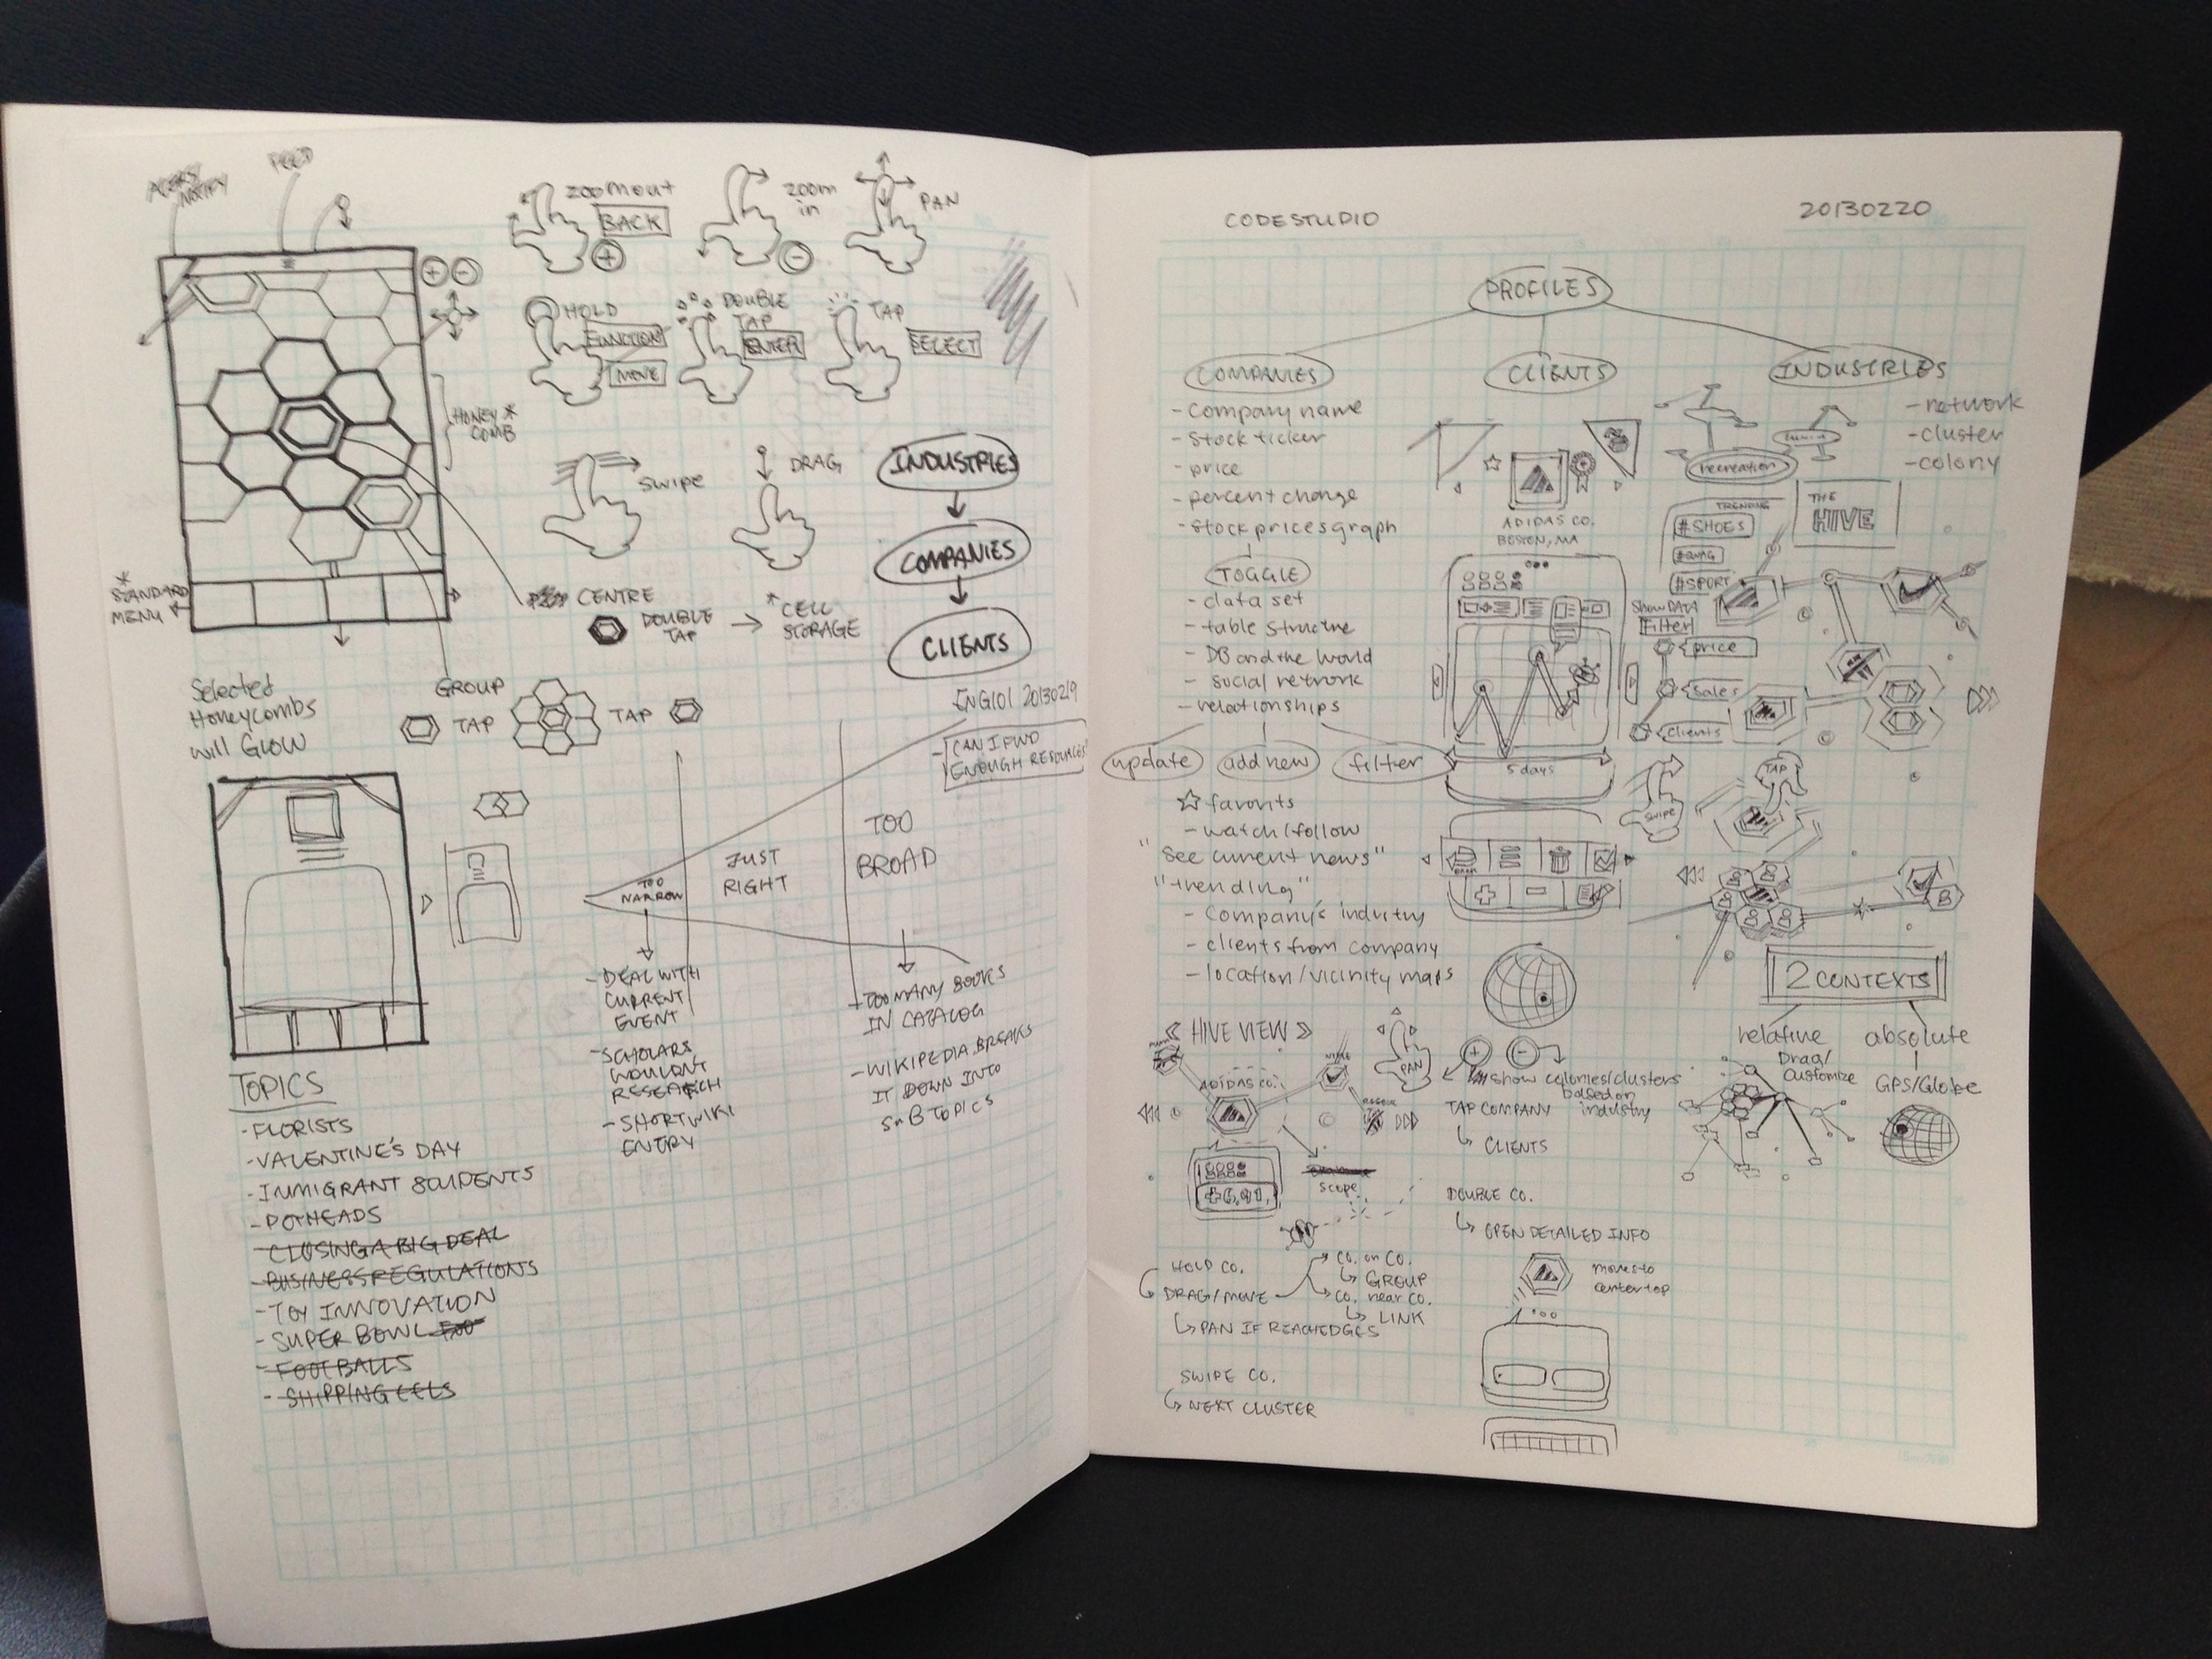 FEED
NOTIFY
ZOOM OUT
BACK
ZOOM
in
PAN
HOLD
FUNCTION
MOVE
DOUBLE
TAP
ENTER
TAP
SELECT
HONEY *
COMB
SWIPE
DRAG
* STANDARD
MENU
CENTRE
DOUBLE
TAP
* CELL
STORAGE
INDUSTRIES
COMPANIES
CLIENTS
Selected
Honeycombs
will GLOW
GROUP
TAP
TAP
ENG101 20130219
- CAN I FIND
ENOUGH RESOURCES?
TOO
NARROW
JUST
RIGHT
TOO
BROAD
- DEAL WITH
CURRENT
EVENT
- SCHOLARS
WOULDNT
RESEARCH
- SHORT WIKI
ENTRY
- TOO MANY BOOKS
IN CATALOG
- WIKIPEDIA BREAKS
IT DOWN INTO
SUB TOPICS
TOPICS
- FLORISTS
- VALENTINE'S DAY
- POTHEADS
- CLOSING A BIG DEAL
- BUSINESS REGULATIONS
- TOY INNOVATION
- SUPER BOWL
- FOOTBALLS
CODESTUDIO
20130220
PROFILES
COMPANIES
CLIENTS
INDUSTRIES
- company name
- stock ticker
- price
- percent change
- stock prices graph
TOGGLE
- data set
- table structure
- DB and the world
- social network
- relationships
update
add new
filter
☆ favorits
- watch/follow
"see current news"
"trending"
- Company's industry
- clients from company
- location/vicinity maps
ADIDAS CO.
BOSTON, MA
5 days
recreation
- network
- cluster
- colony
TRENDING
#SHOES
#SWAG
#SPORT
THE
HIVE
Show DATA
Filter
price
Sales
Clients
SWIPE
TAP
B
2 CONTEXTS
relative
absolute
Drag/
Customize
GPS/Globe
« HIVE VIEW »
NIKE
ADIDAS CO.
PAN
show colonies/clusters
based on
industry
TAP COMPANY
↳ CLIENTS
scope
DOUBLE CO.
↳ OPEN DETAILED INFO
moves to
center top
HOLD CO.
DRAG/MOVE
↳ PAN IF REACH EDGES
CO. on CO.
↳ GROUP
CO. near CO.
↳ LINK
SWIPE CO.
↳ NEXT CLUSTER